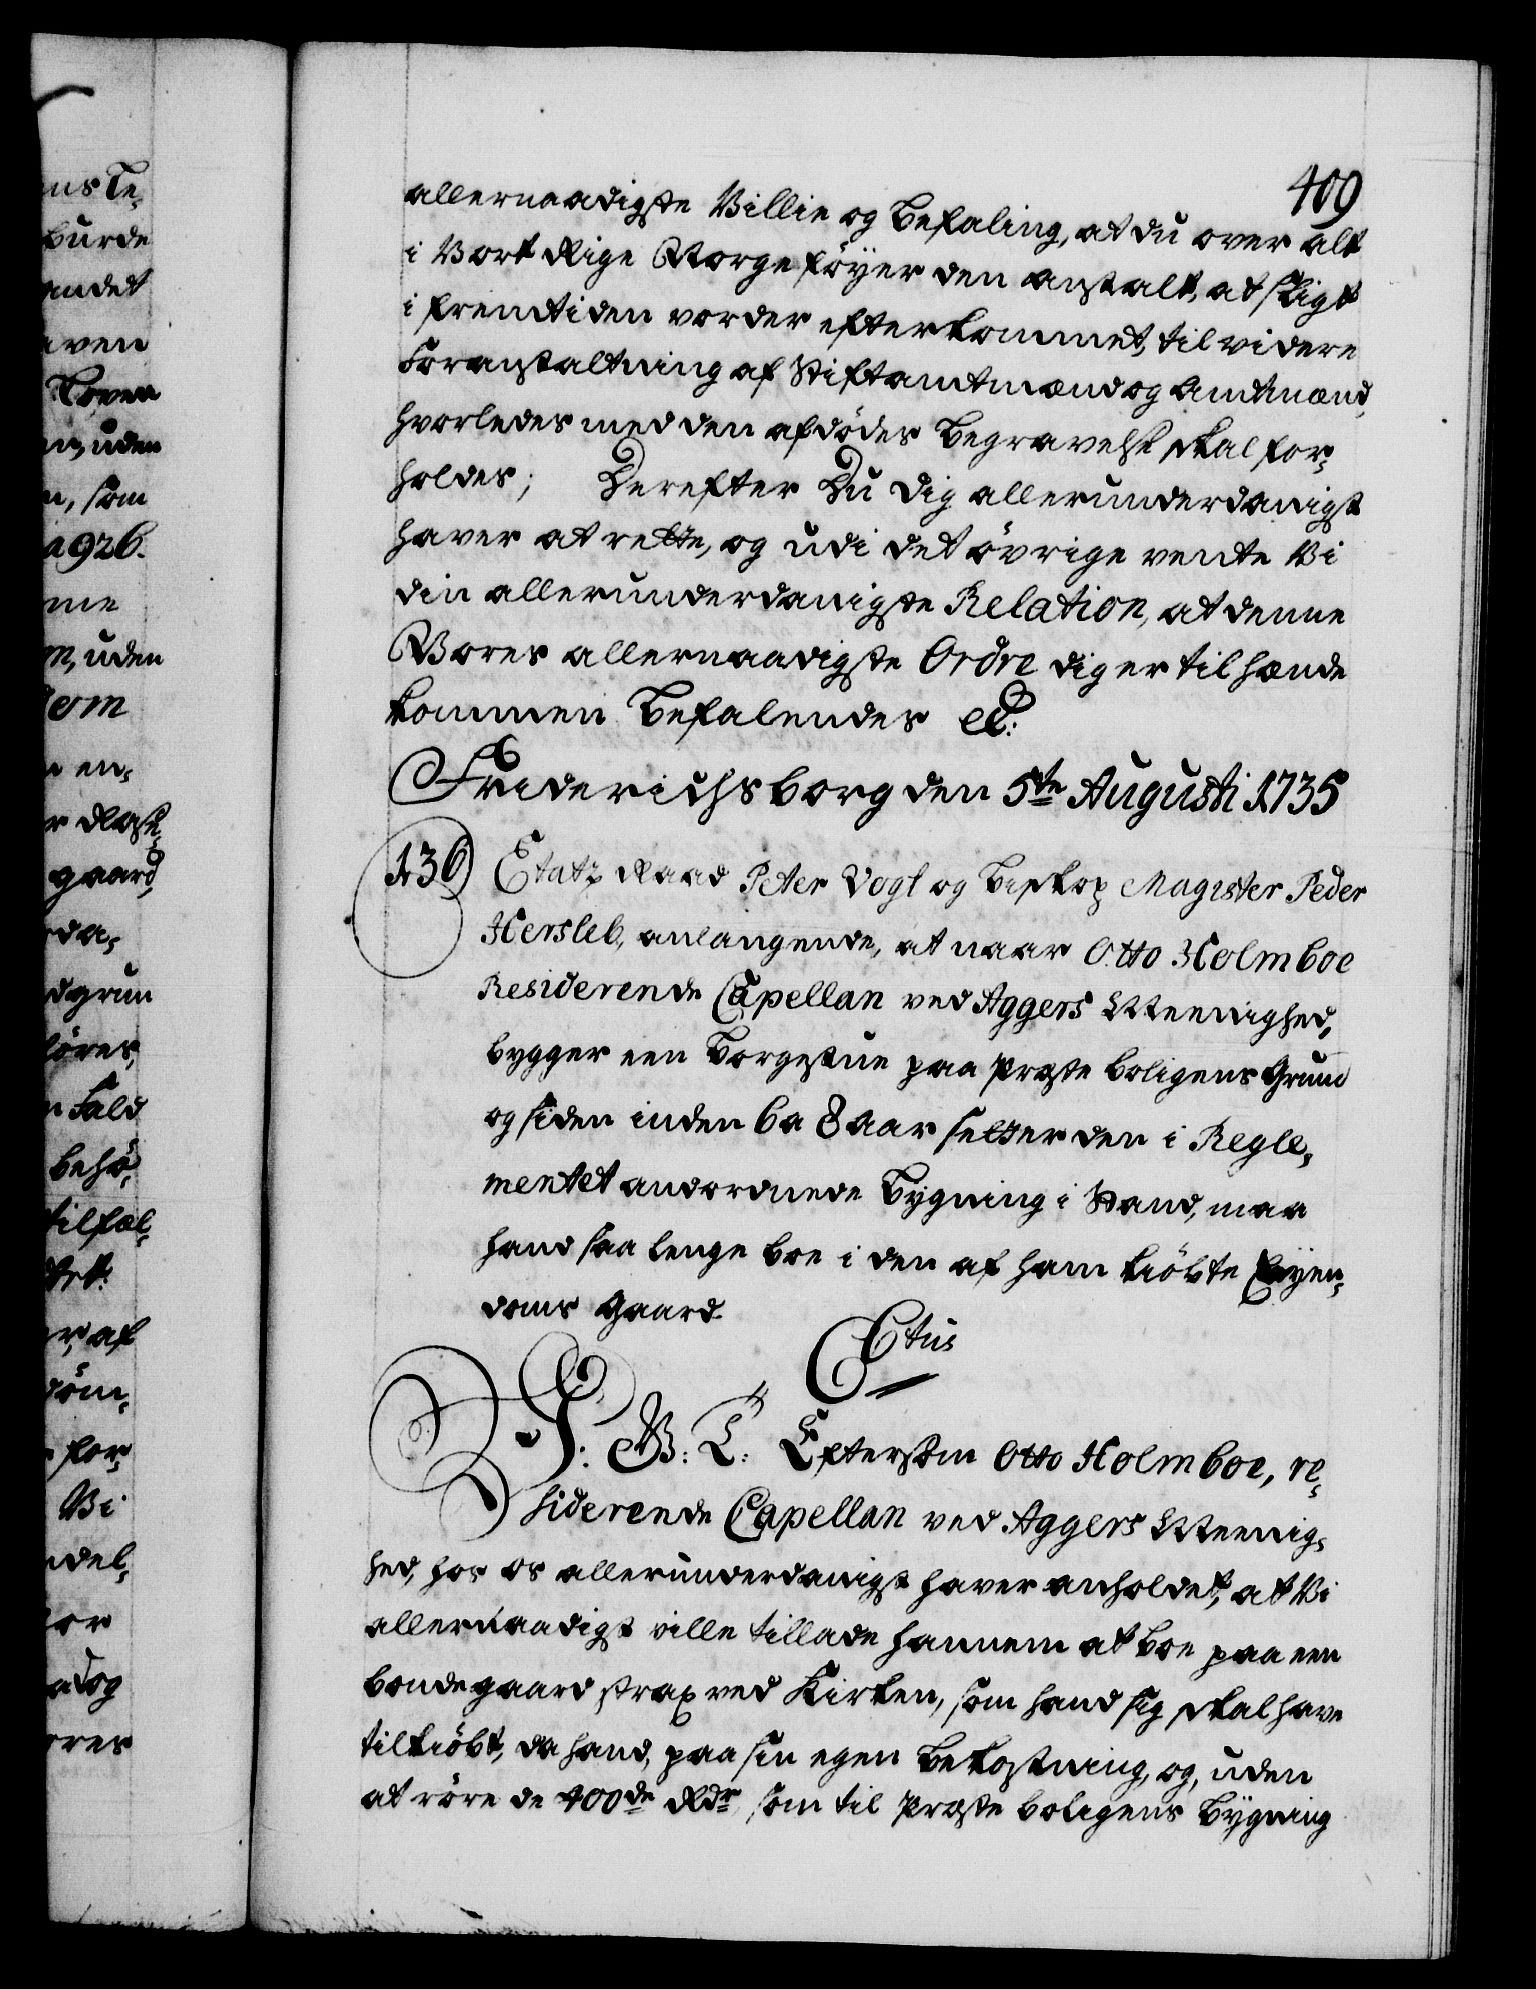 409
allernaadigste Villie og Befaling, at du over alt
i Vort Rige Norge föyer den anstalt, at sligt
i fremtiden vorder efterkommet, til videre
Foranstaltning af Stiftamtmænd og Amtmænd,
hvorledes med den afdödes Begravelse skal for-
holdes; Derefter Du dig allerunderdanigst
haver at rette, og udi det övrige vente Vi
din allerunderdanigste Relation, at denne
Vores allernaadigste Ordre dig er til hænde
kommen Befalendes etc:
Friderichsborg den 5te Augusti 1735
136 Etatz Raad Peter Vogt og Biskop Magister Peder
Hersleb, anlangende, at naar Otto Holmboe
Residerende Capellan ved Aggers Meenighed,
bygger een Borgestue paa Præste boligens Grund
og siden inden 6 a 8 aar setter den i Regle-
mentet andordnede Bygning i Stand, maa
hand saa lenge boe i den af ham kiöbte Eyen-
doms Gaard.
C 6tus
V: G: T: Eftersom Otto Holmboe, re-
siderende Capellan ved Aggers Meenig-
hed, hos os allerunderdanigst haver anholdet, at Vi
allernaadigst ville tillade hannem at boe paa een
bondegaard strax ved Kirken, som hand sig skal have
tilkiöbt, da hand, paa sin egen Bekostning, og, uden
at röre de 400de Rdr, som til Præste boligens Bygning
ns Te-
burde
andet
aven
Loven
n, uden
n, som
a 926.
me
m, uden
lom
n en-
gaard,
rda-
dgrun
löres,
n Fald
behö-
tilfæl-
r, af
döm-
for-
Vi
ndel-
or
adog
ores